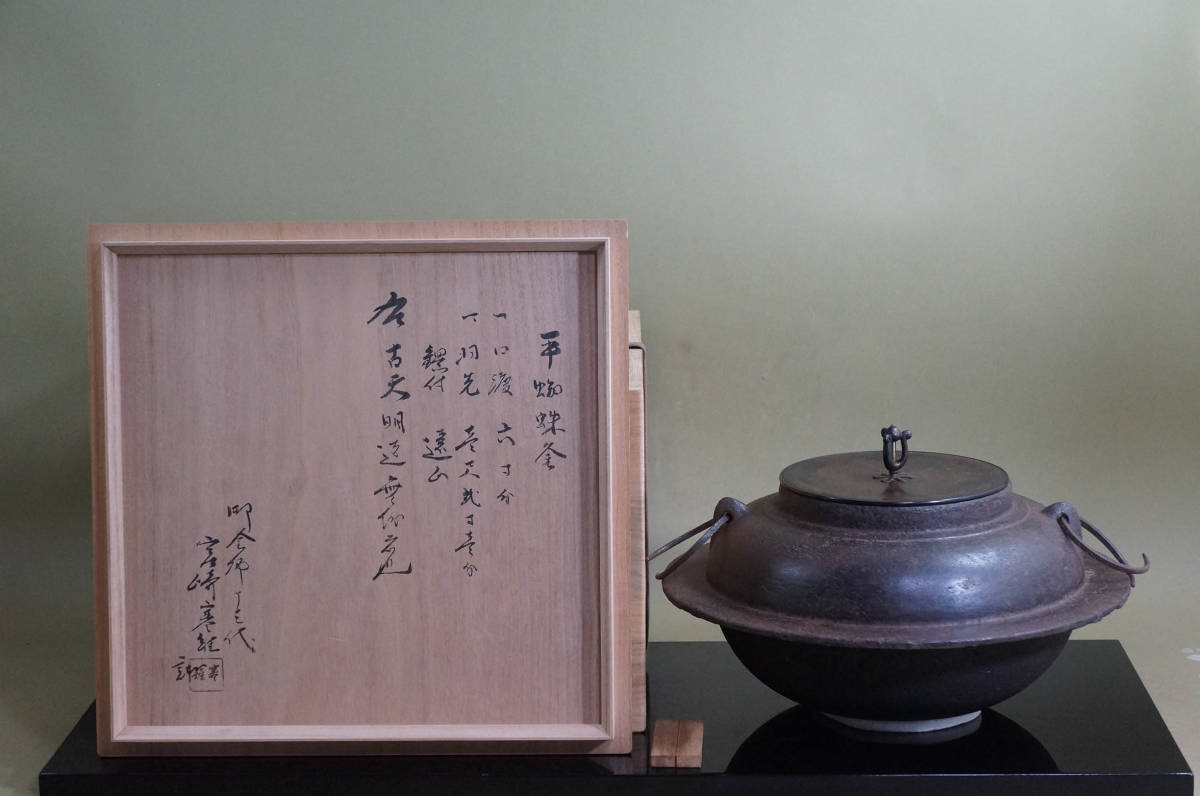 平蜘蛛釜
一口渡 六寸分
一羽先 壱尺弐寸壱分
鐶付 遠山
右古天明造無疑者也
御釜師十三代
宮崎寒雉